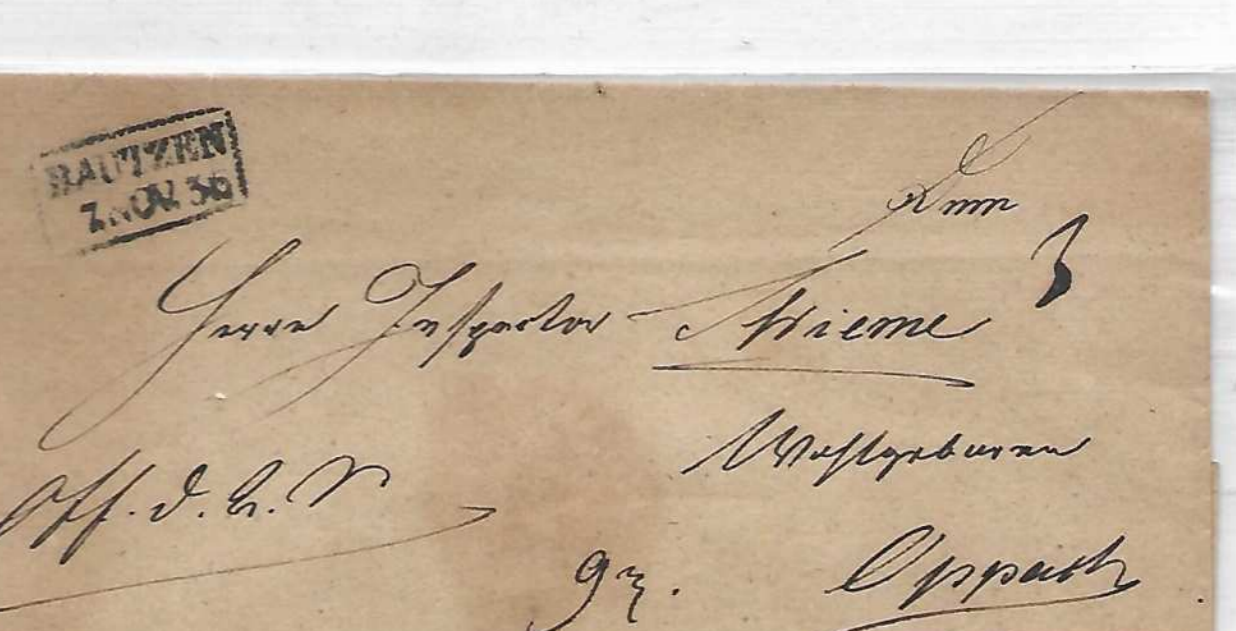 BAUTZEN
7. NOV. 36
Dem
Herrn Inspector Thieme
Wohlgeboren
Off. d. L. V.
Oppach